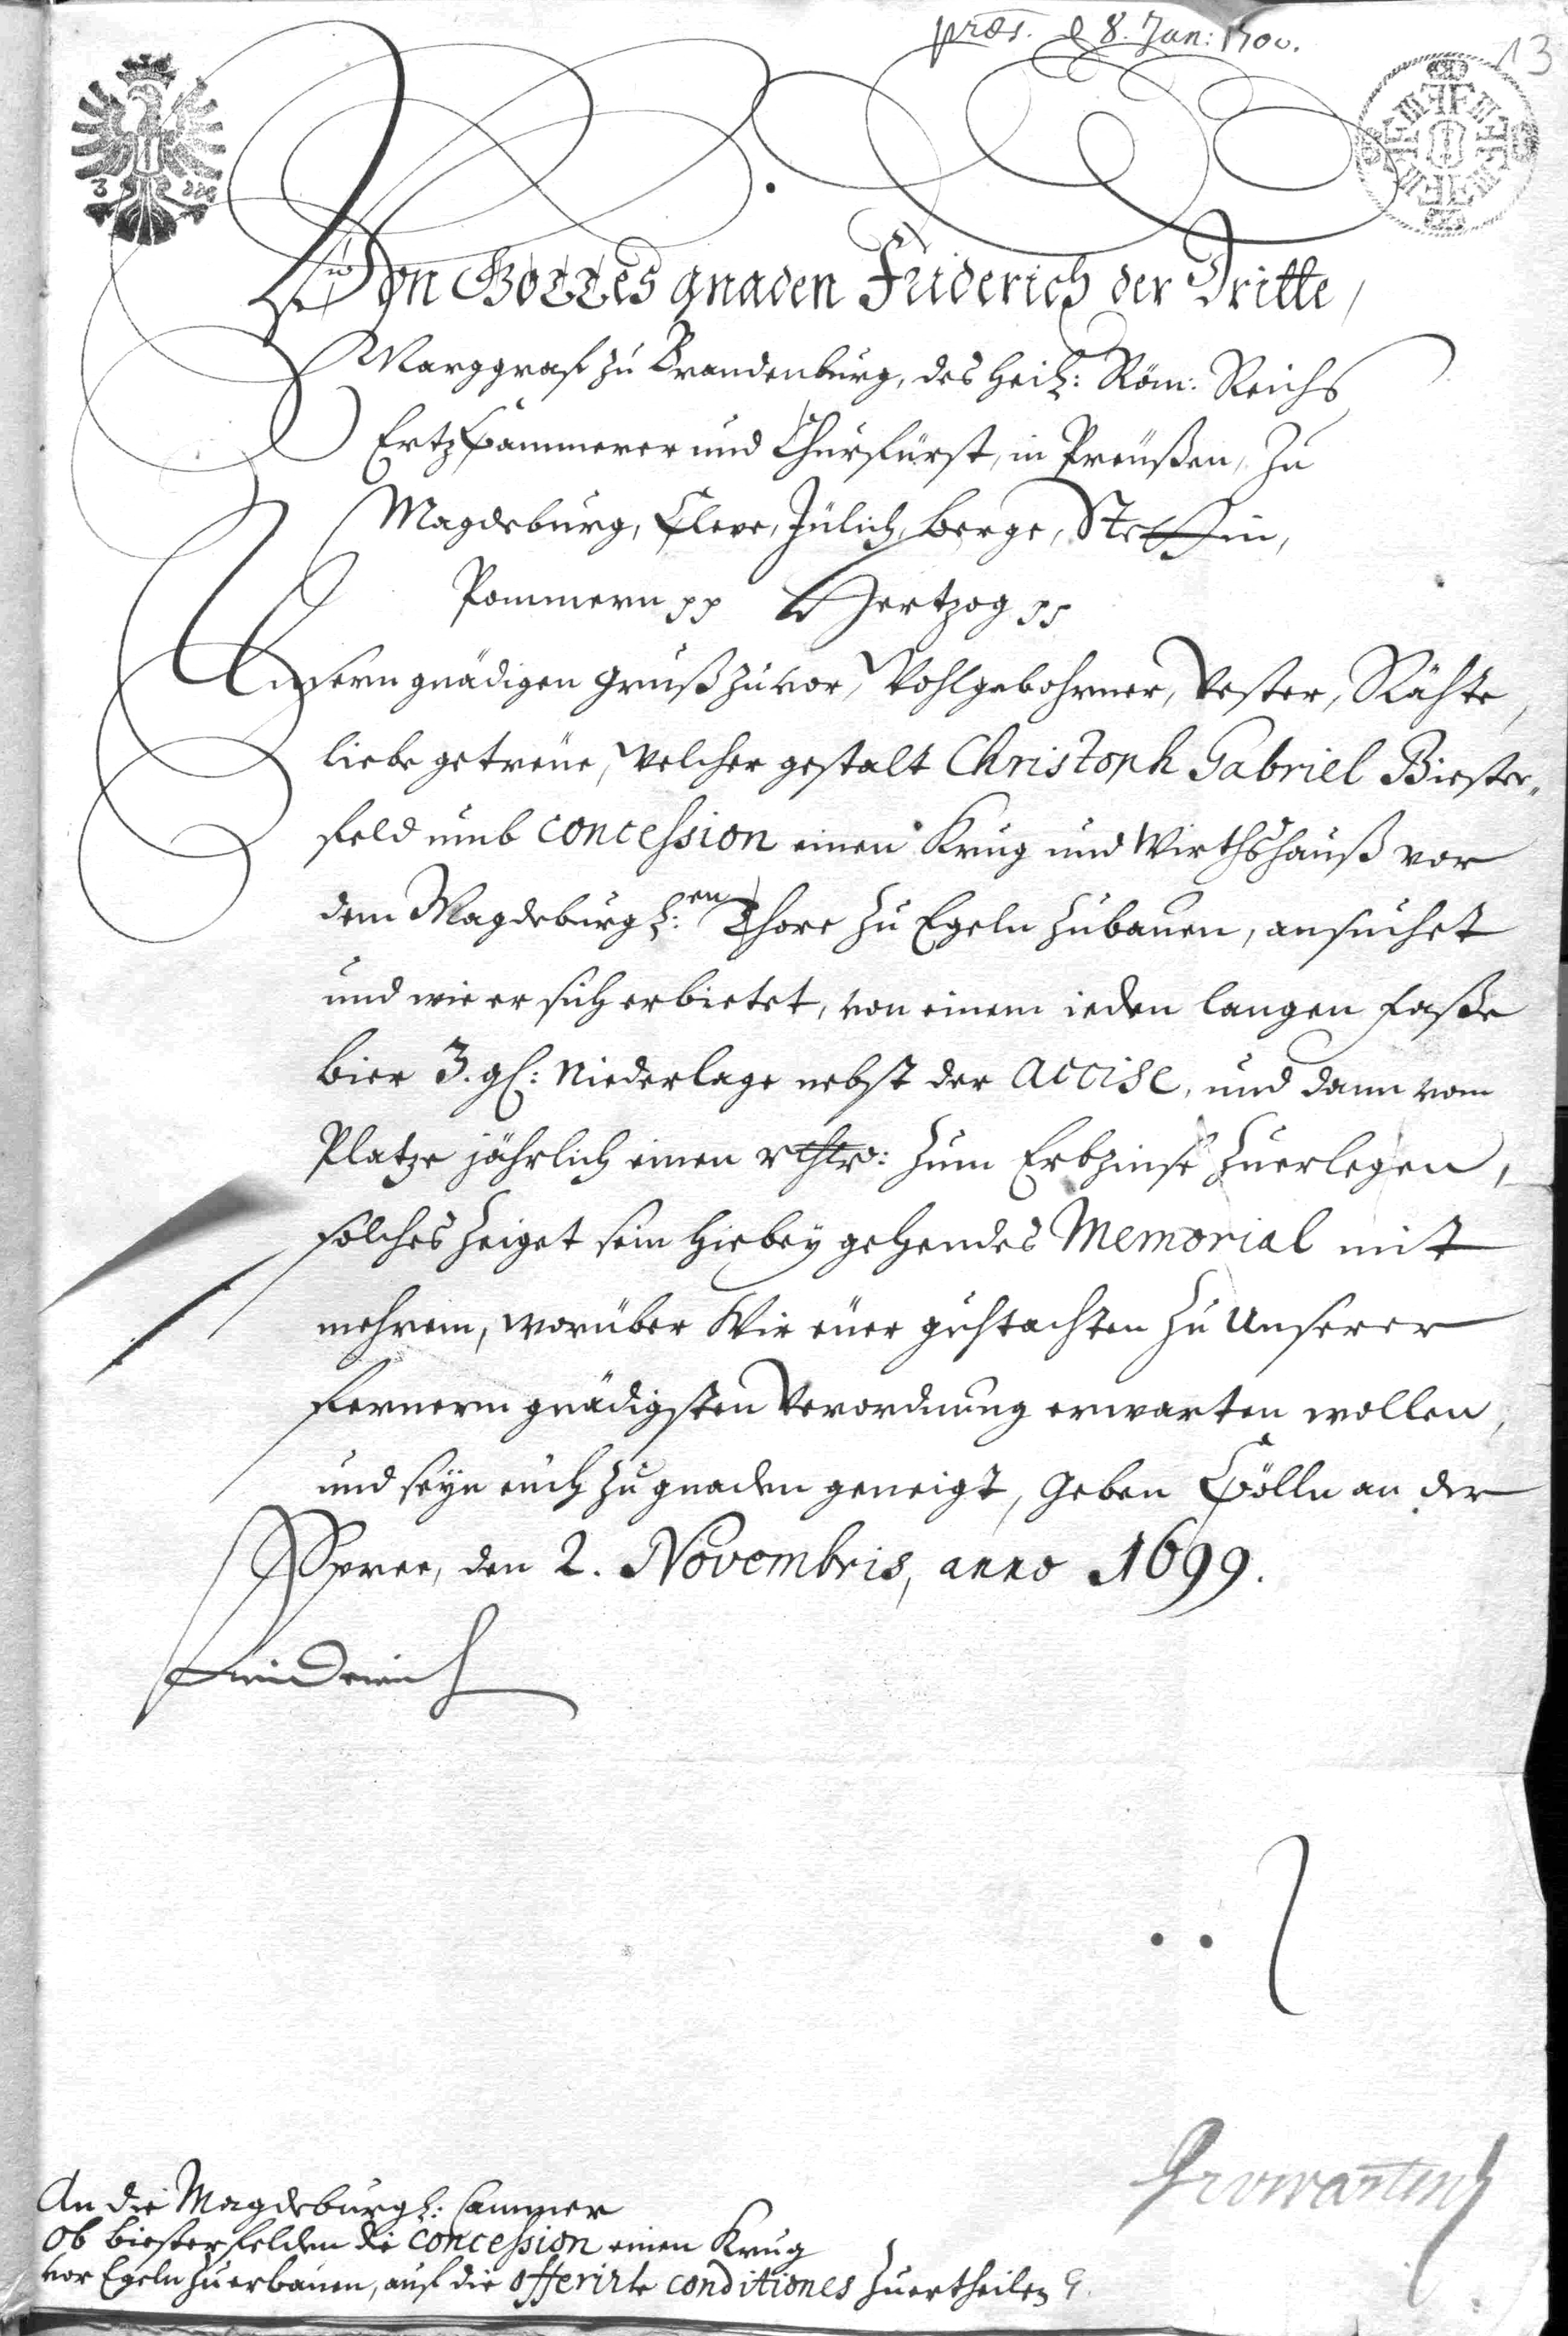 præs. d 8. Jan: 1700.
13
Von Gottes gnaden Friderich der Dritte,
Marggraf zu Brandenburg, des Heil: Röm: Reichs
ErtzCämmerer und Churfürst, in Preüßen, zu
Magdeburg, Cleve, Jülich, Berge, Stettin,
Pommern pp Hertzog pp
Unsern gnädigen Gruß zuvor, Wohlgebohrner, Vester, Rähte,
liebe getreüe, Welcher gestalt Christoph Gabriel Biester-
feld umb concession einen Krug und Wirthshauß vor
dem Magdeburgl:en Thore zu Egeln zubauen, ansuchet
und wie er sich erbietet, von einem ieden langen Faße
Bier 3. gl: Niederlage nebst der accise, und dann vom
Platze jährlich einen rthlr: zum Erbzinse zuerlegen,
solches zeiget sein hiebey gehendes Memorial mit
mehrem, worüber Wir eüer guhtachten zu Unserer
fernerm gnädigsten Verordnung erwarten wollen,
und seyn eüch zu gnaden geneigt, Geben Cölln an der
Spree, den 2. Novembris, anno 1699.
Friderich
An die Magdeburgl: Cammer
Ob Biesterfelden die concession einen Krug
vor Egeln zuerbauen, auf die offerirte conditiones zuertheilen